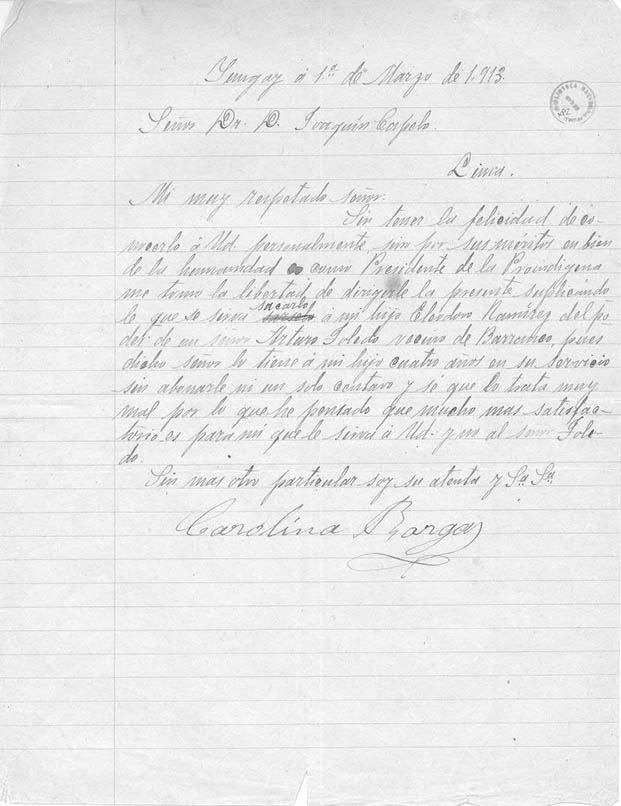 Yungay á 1º de Marzo de 1.913.
Señor Dr. D. Joaquín Capelo.
Lima.
Mi muy respetado señor:
Sin tener la felicidad de co-
nocerlo á Ud. personalmente sino por sus méritos en bien
de la humanidad como Presidente de la Proindígena
me tomo la libertad de dirigirle la presente suplicándo
le que se sirva sacarlo á mi hijo Eleodoro Ramírez del po
der de un señor Arturo Toledo vecino de Barranco, pues
dicho señor lo tiene á mi hijo cuatro años en su servicio
sin abonarle ni un solo centavo y sé que lo trata muy
mal por lo que he pensado que mucho mas satisfac-
torio es para mi que le sirva á Ud. y no al señor Tole-
do.
Sin mas otro particular soy su atenta y Sa. Sa.
Carolina Bargas
BIBLIOTECA NACIONAL